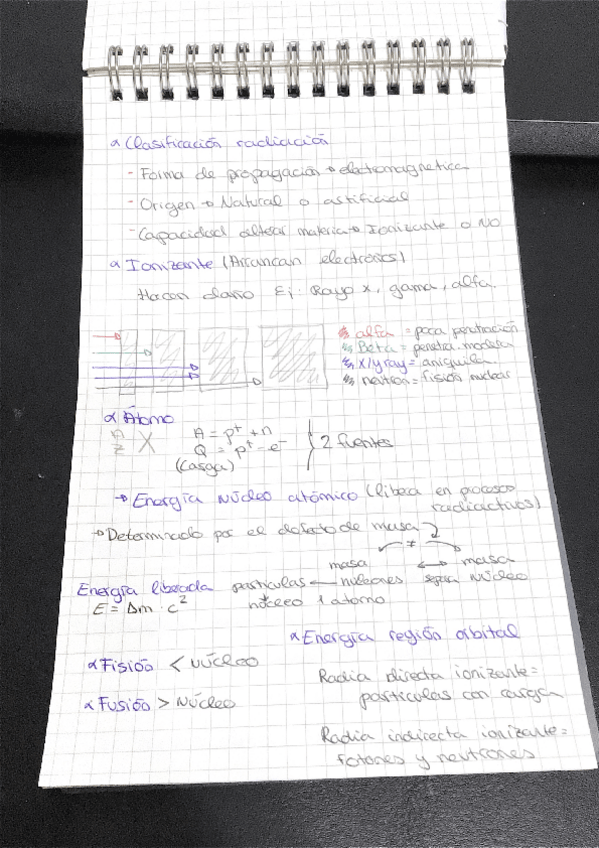 α Clasificación radiación
- Forma de propagación → electromagnetica
- Origen → Natural o artificial
- Capacidad alterar materia → Ionizante o NO
α Ionizante (Arrancan electrones)
Hacen daño Ej: Rayo x, gama, alfa.
alfa = poca penetración
Beta = penetra. modera
x/y ray = aniquila
neutron = fisión nuclear
α Átomo
A
Z X
A = p⁺ + n
Q = p⁺ - e⁻
(carga)
2 fuentes
→ Energía Núcleo atómico (libera en procesos
radiactivos)
→ Determinado por el defecto de masa
≠
masa ↔ masa
Energía liberada particulas nucleones separa núcleo
E = Δm · c² núcleo 1 atomo
α Energía región orbital
α Fisión < Núcleo
α Fusión > Núcleo
Radia directa ionizante =
particulas con carga
Radia indirecta ionizante =
fotones y neutrones